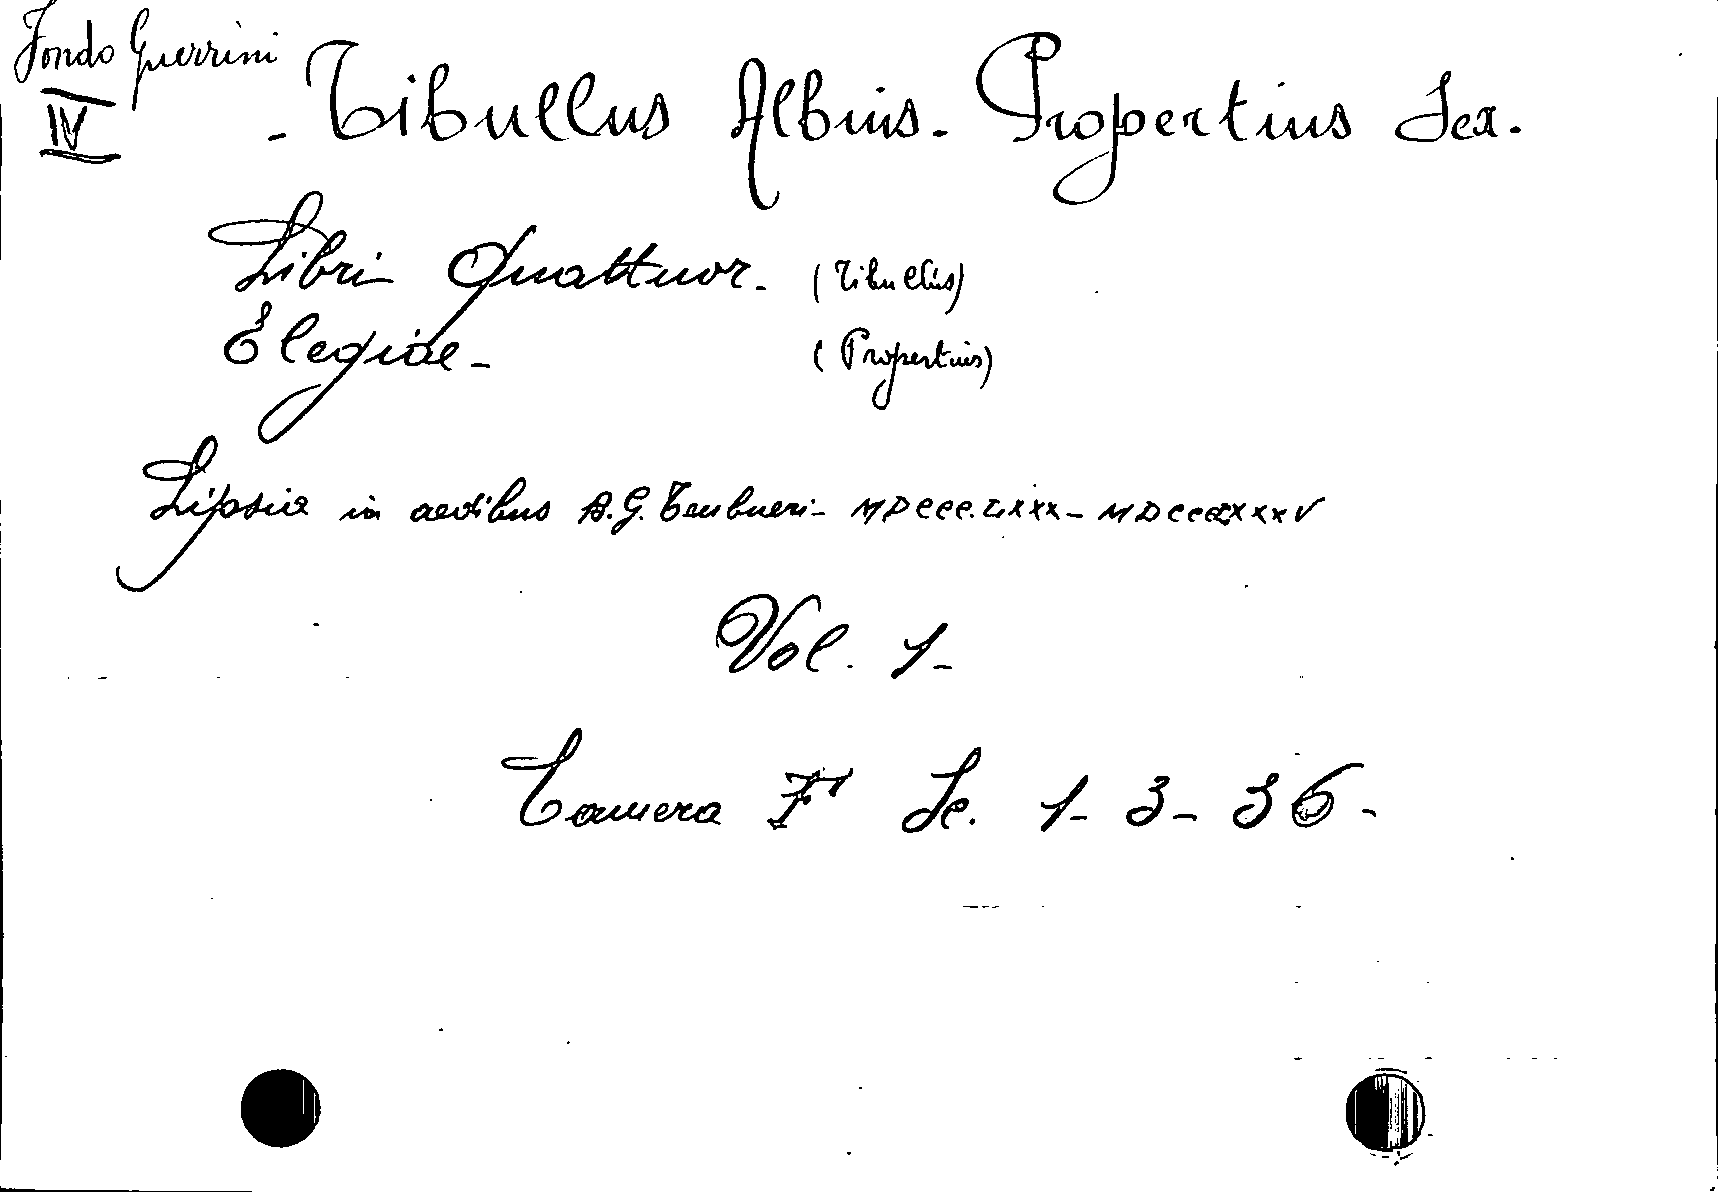 Fondo Guerrini
IV
- Tibullus Albius. Propertius Sex.
Libri Quattuor. (Tibullus)
Elegiae - (Propertius)
Lipsia in aedibus B. G. Teubneri - MDCCC.LXXX - MDCCCLXXXV
Vol. 1-
Camera F Sc. 1- 3- 36-